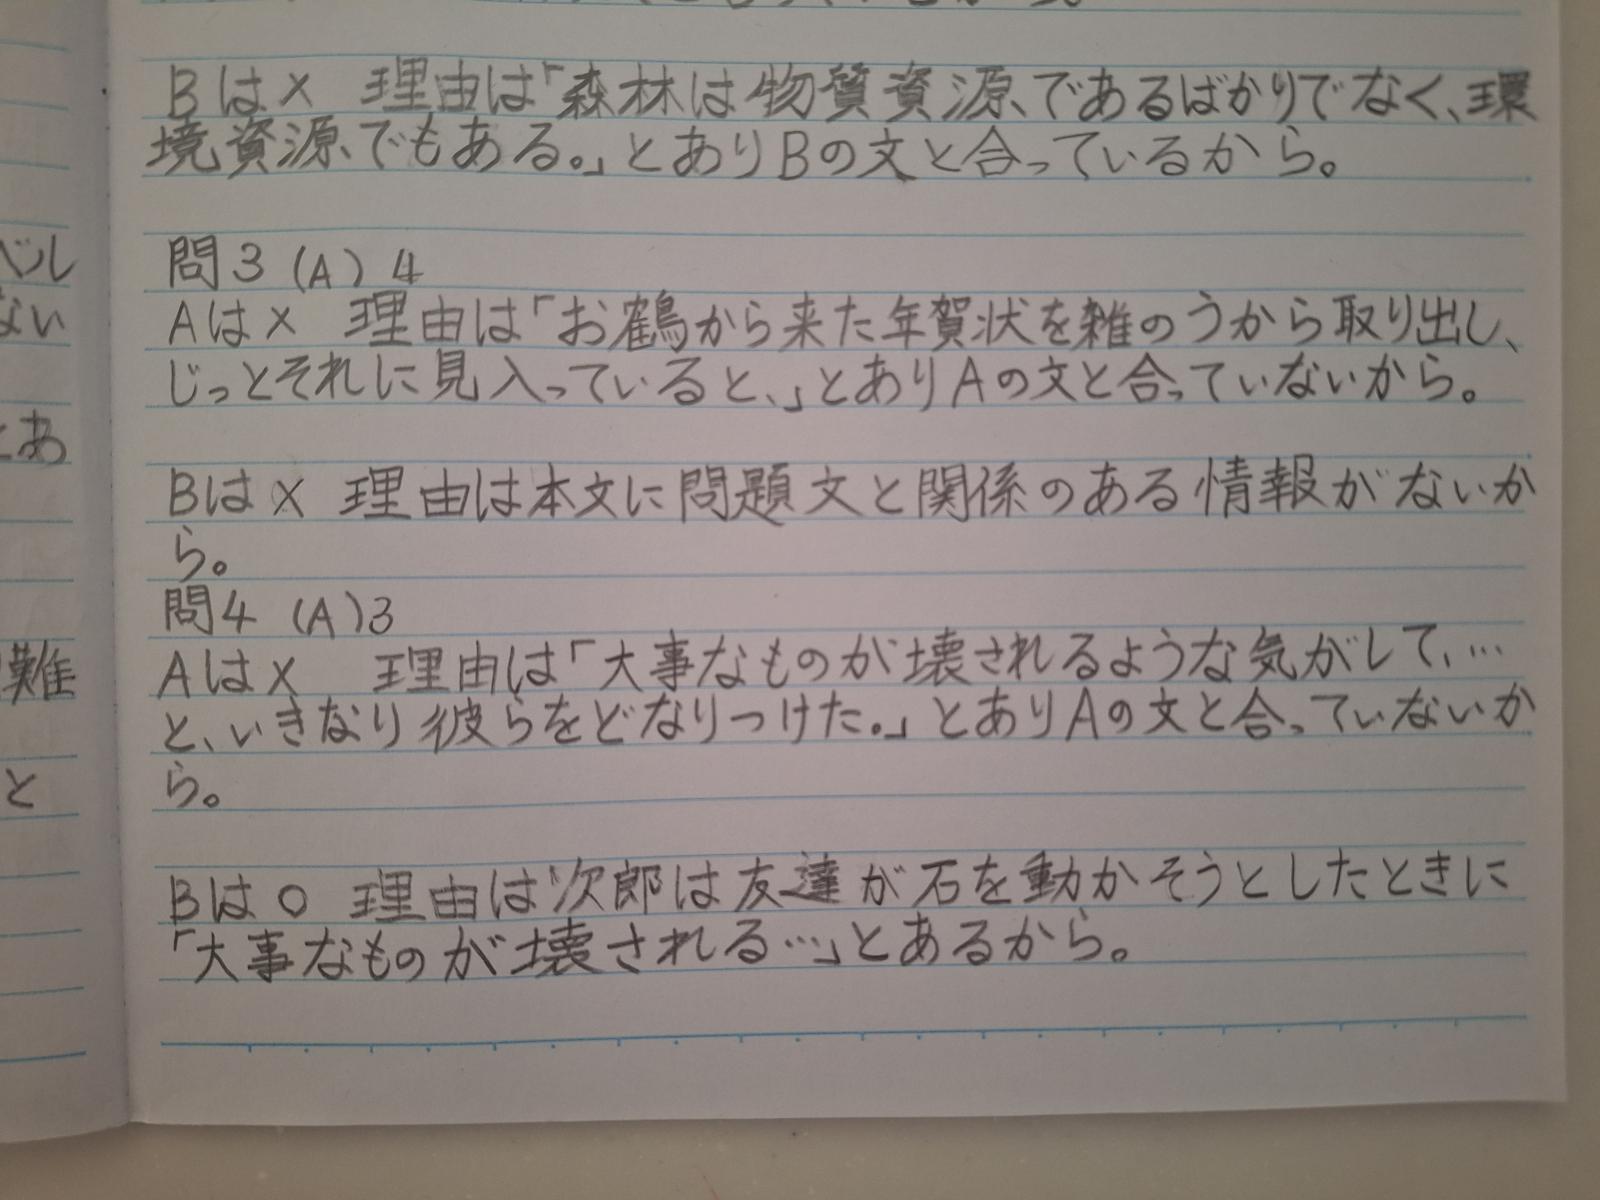 Bは× 理由は「森林は物質資源であるばかりでなく、環
境資源でもある。」とありBの文と合っているから。
問3 (A) 4
Aは× 理由は「お鶴から来た年賀状を雑のうから取り出し、
じっとそれに見入っていると、」とありAの文と合っていないから。
Bは× 理由は本文に問題文と関係のある情報がないか
ら。
問4 (A)3
Aは× 理由は「大事なものが壊されるような気がして、…
と、いきなり彼らをどなりつけた。」とありAの文と合っていないか
ら。
Bは○ 理由は次郎は友達が石を動かそうとしたときに
「大事なものが壊される…」とあるから。
ベル
ない
とあ
難
と